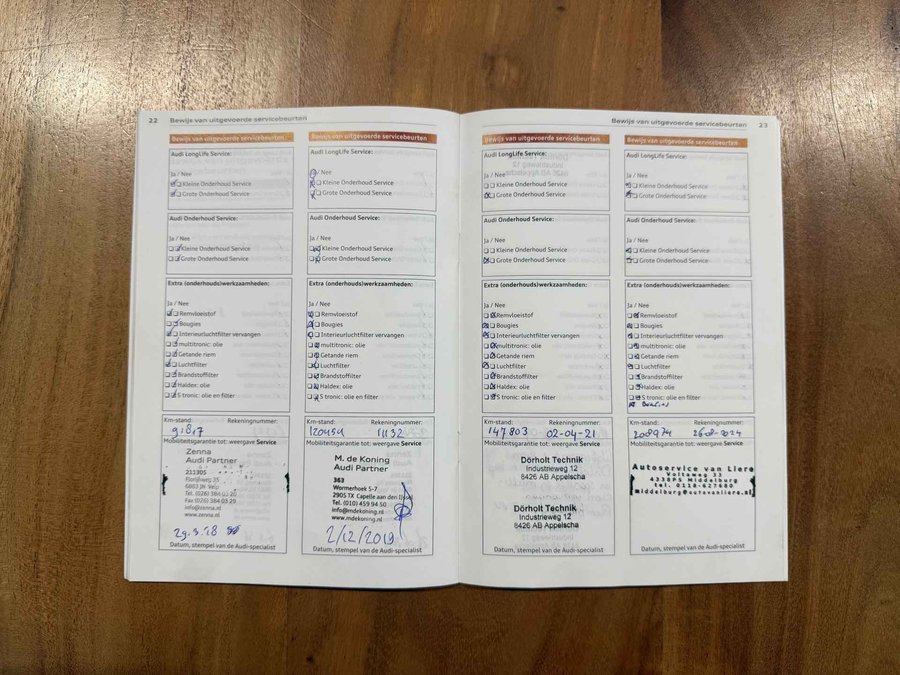 22 Bewijs van uitgevoerde servicebeurten
Bewijs van uitgevoerde servicebeurten
Audi LongLife Service:
Ja / Nee
Kleine Onderhoud Service
Grote Onderhoud Service
Audi Onderhoud Service:
Ja / Nee
Kleine Onderhoud Service
Grote Onderhoud Service
Extra (onderhouds)werkzaamheden:
Ja / Nee
Remvloeistof
Bougies
Interieurluchtfilter vervangen
multitronic: olie
Getande riem
Luchtfilter
Brandstoffilter
Haldex: olie
S tronic: olie en filter
Km-stand: Rekeningnummer:
91817
Mobiliteitsgarantie tot: weergave Service
Zenna
Audi Partner
211305
Florijnweg 35
6883 JN Velp
Tel. (026) 384 03 20
Fax (026) 384 03 29
info@zenna.nl
www.zenna.nl
29.3.18
Datum, stempel van de Audi-specialist
Bewijs van uitgevoerde servicebeurten
Audi LongLife Service:
/ Nee
Kleine Onderhoud Service
Grote Onderhoud Service
Audi Onderhoud Service:
Ja / Nee
Kleine Onderhoud Service
Grote Onderhoud Service
Extra (onderhouds)werkzaamheden:
Ja / Nee
Remvloeistof
Bougies
Interieurluchtfilter vervangen
multitronic: olie
Getande riem
Luchtfilter
Brandstoffilter
Haldex: olie
S tronic: olie en filter
Km-stand: Rekeningnummer:
120454 11132
Mobiliteitsgarantie tot: weergave Service
M. de Koning
Audi Partner
363
Wormerhoek 5-7
2905 TX Capelle aan den IJssel
Tel. (010) 459 94 50
info@mdekoning.nl
www.mdekoning.nl
2/12/2019
Datum, stempel van de Audi-specialist
Bewijs van uitgevoerde servicebeurten 23
Bewijs van uitgevoerde servicebeurten
Audi LongLife Service:
Ja / Nee
Kleine Onderhoud Service
Grote Onderhoud Service
Audi Onderhoud Service:
Ja / Nee
Kleine Onderhoud Service
Grote Onderhoud Service
Extra (onderhouds)werkzaamheden:
Ja / Nee
Remvloeistof
Bougies
Interieurluchtfilter vervangen
multitronic: olie
Getande riem
Luchtfilter
Brandstoffilter
Haldex: olie
S tronic: olie en filter
Km-stand: Rekeningnummer:
147803 02-04-21
Mobiliteitsgarantie tot: weergave Service
Dörholt Technik
Industrieweg 12
8426 AB Appelscha
Dörholt Technik
Industrieweg 12
8426 AB Appelscha
Datum, stempel van de Audi-specialist
Bewijs van uitgevoerde servicebeurten
Audi LongLife Service:
Ja / Nee
Kleine Onderhoud Service
Grote Onderhoud Service
Audi Onderhoud Service:
Ja / Nee
Kleine Onderhoud Service
Grote Onderhoud Service
Extra (onderhouds)werkzaamheden:
Ja / Nee
Remvloeistof
Bougies
Interieurluchtfilter vervangen
multitronic: olie
Getande riem
Luchtfilter
Brandstoffilter
Haldex: olie
S tronic: olie en filter
Km-stand: Rekeningnummer:
208974 26-08-2024
Mobiliteitsgarantie tot: weergave Service
Autoservice van Liere
Voltaweg 33
4338PS Middelburg
tel. 0118-627680
middelburg@autovanliere.nl
Datum, stempel van de Audi-specialist